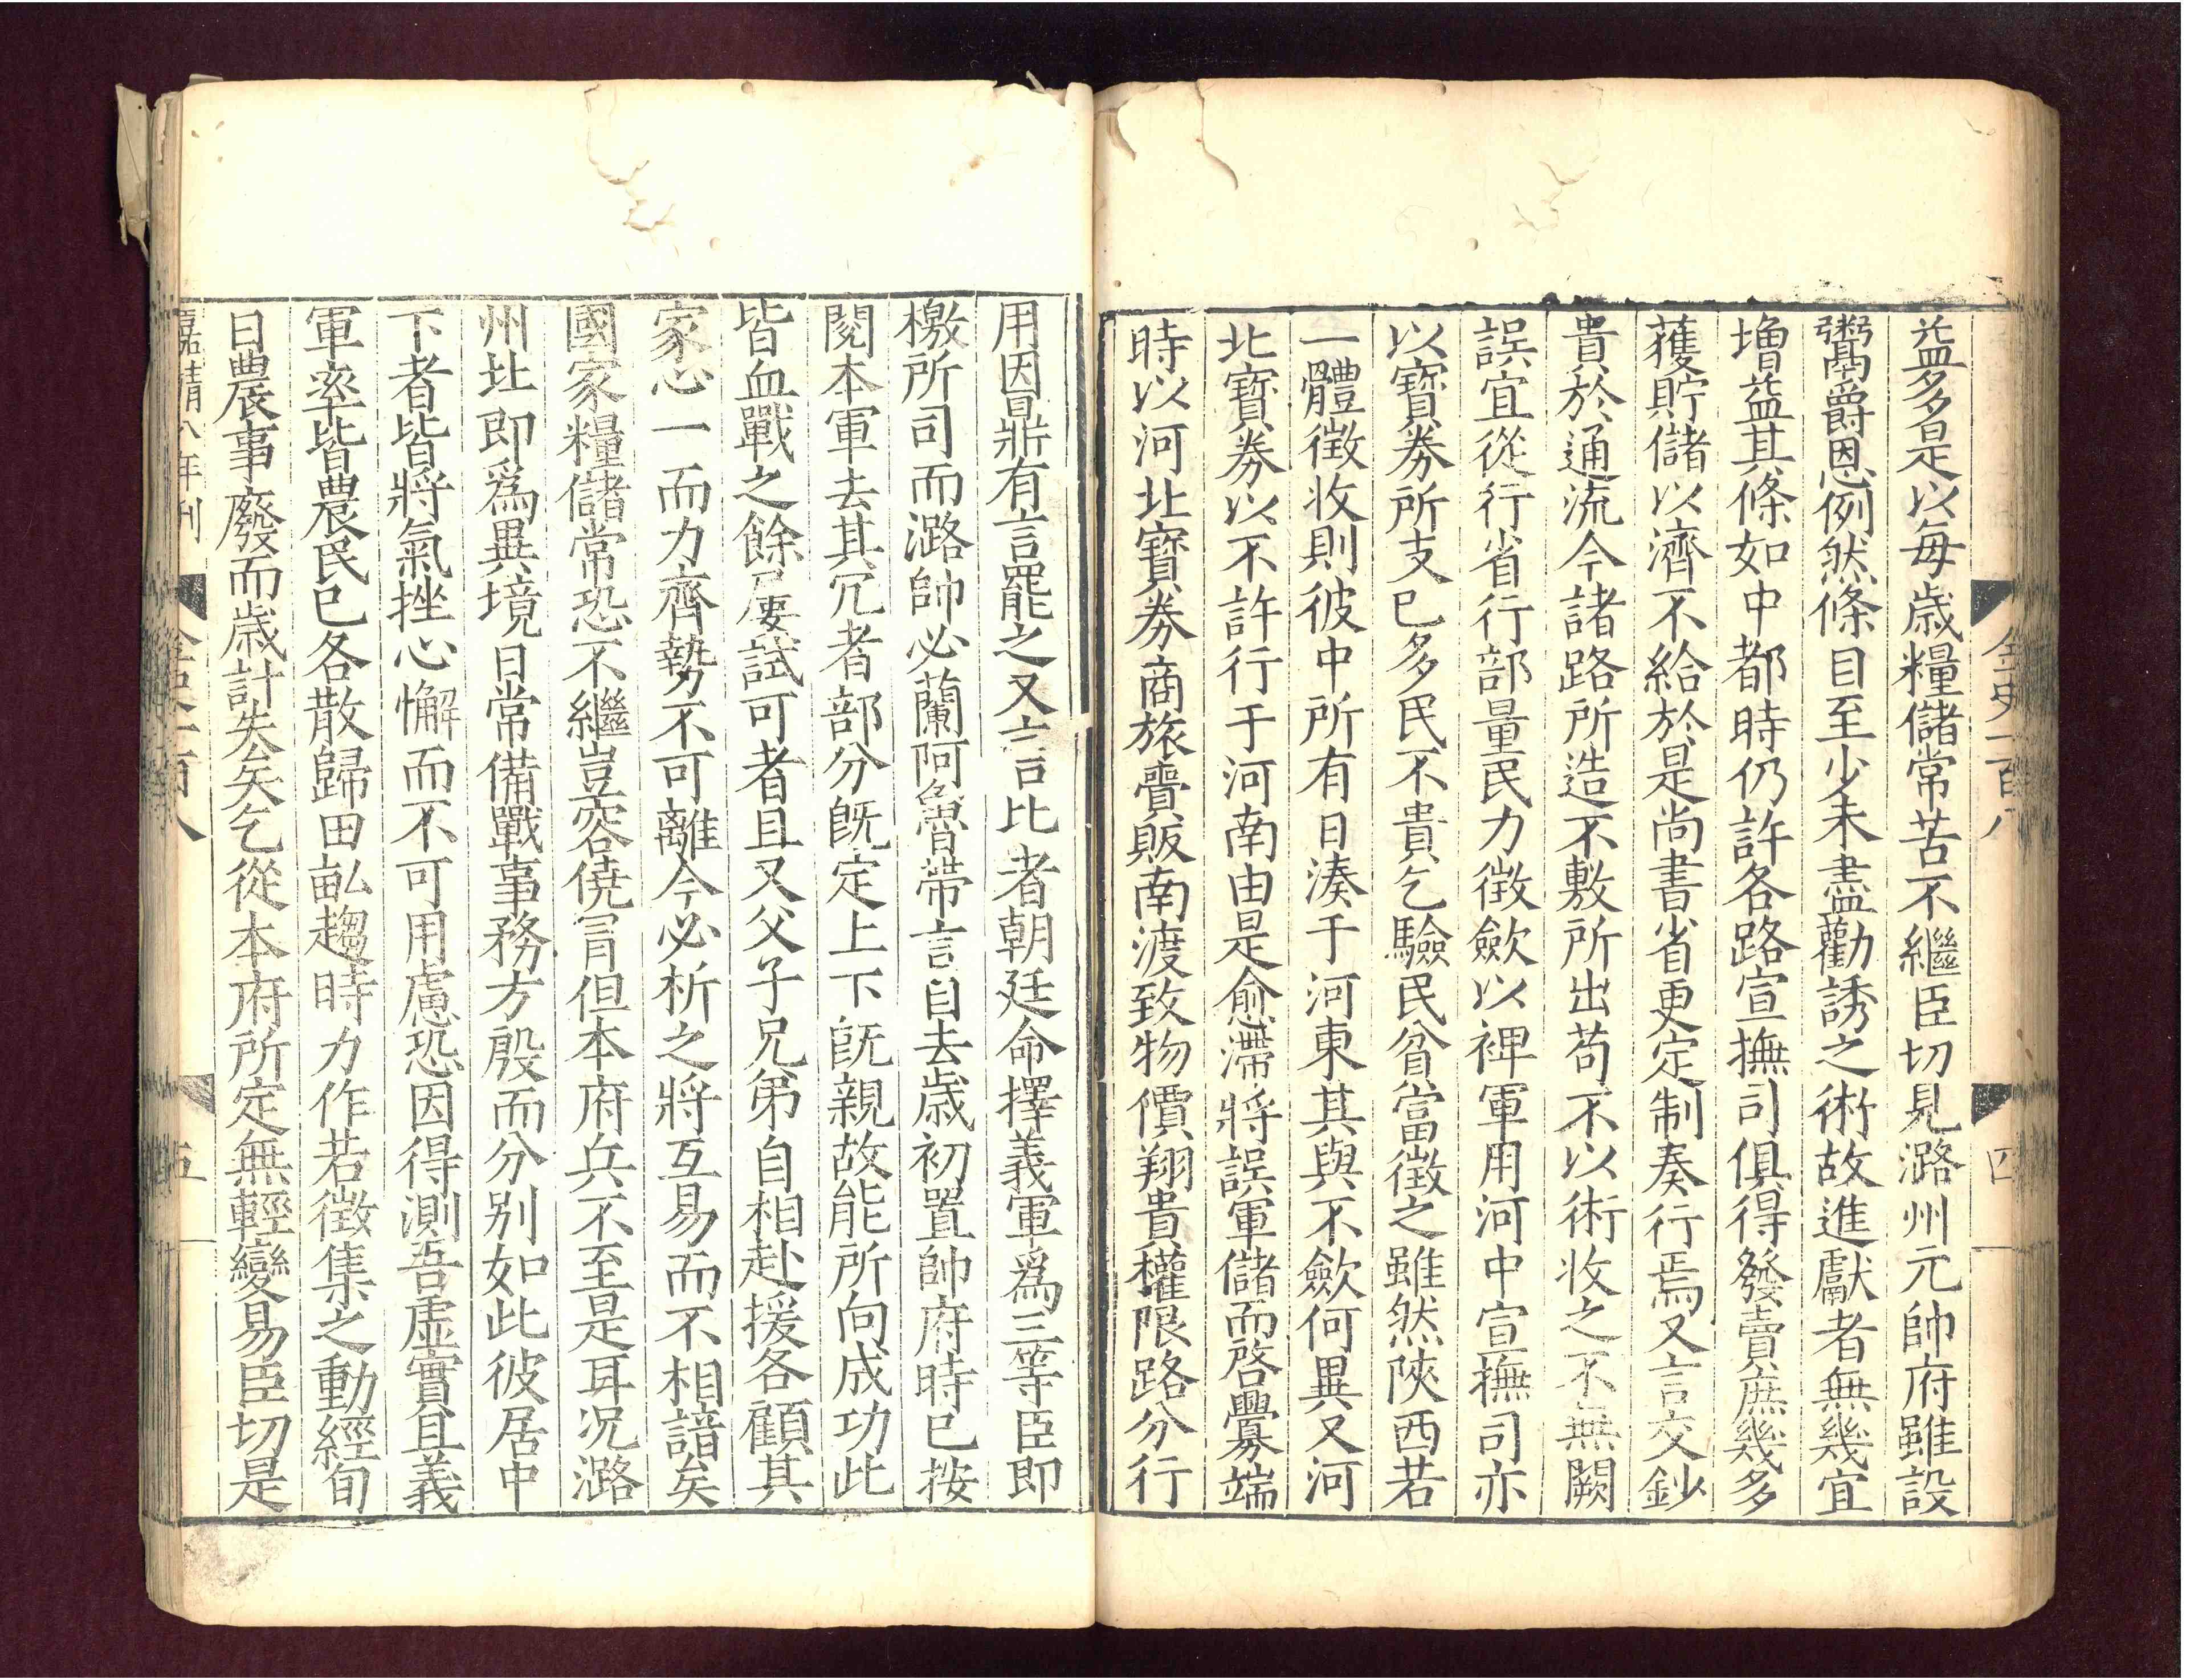 金史一百八
四
益多是以每歳糧儲常苦不繼臣切見潞州元帥府雖設
鬻爵恩例然條目至少未盡勸誘之術故進獻者無幾宜
增益其條如中都時仍許各路宣撫司俱得發賣庶幾多
獲貯儲以濟不給於是尚書省更定制奏行焉又言交鈔
貴於通流今諸路所造不敷所出苟不以術收之不無闕
誤宜從行省行部量民力徵歛以裨軍用河中宣撫司亦
以寶券所支已多民不貴乞驗民貧當徴之雖然陝西若
一體徵收則彼中所有日湊于河東其與不歛何異又河
北寶券以不許行于河南由是愈滯將誤軍儲而啓釁端
時以河北寶券商旅賷販南渡致物價翔貴權限路分行
用因鼎有言罷之又言比者朝廷命擇義軍爲三等臣即
檄所司而潞帥必蘭阿魯帶言自去歳初置帥府時已按
閱本軍去其冗者部分旣定上下旣親故能所向成功此
皆血戰之餘屢試可者且又父子兄弟自相赴援各顧其
家心一而力齊勢不可離今必析之將互易而不相諳矣
國家糧儲常恐不繼豈容僥冐但本府兵不至是耳況潞
州北即爲異境日常備戰事務方殷而分别如此彼居中
下者皆將氣挫心懈而不可用慮恐因得測吾虛實且義
軍率皆農民已各散歸田畝趨時力作若徵集之動經旬
日農事廢而歳計失矣乞從本府所定無輕變易臣切是
嘉靖八年刊
金史一百八
五